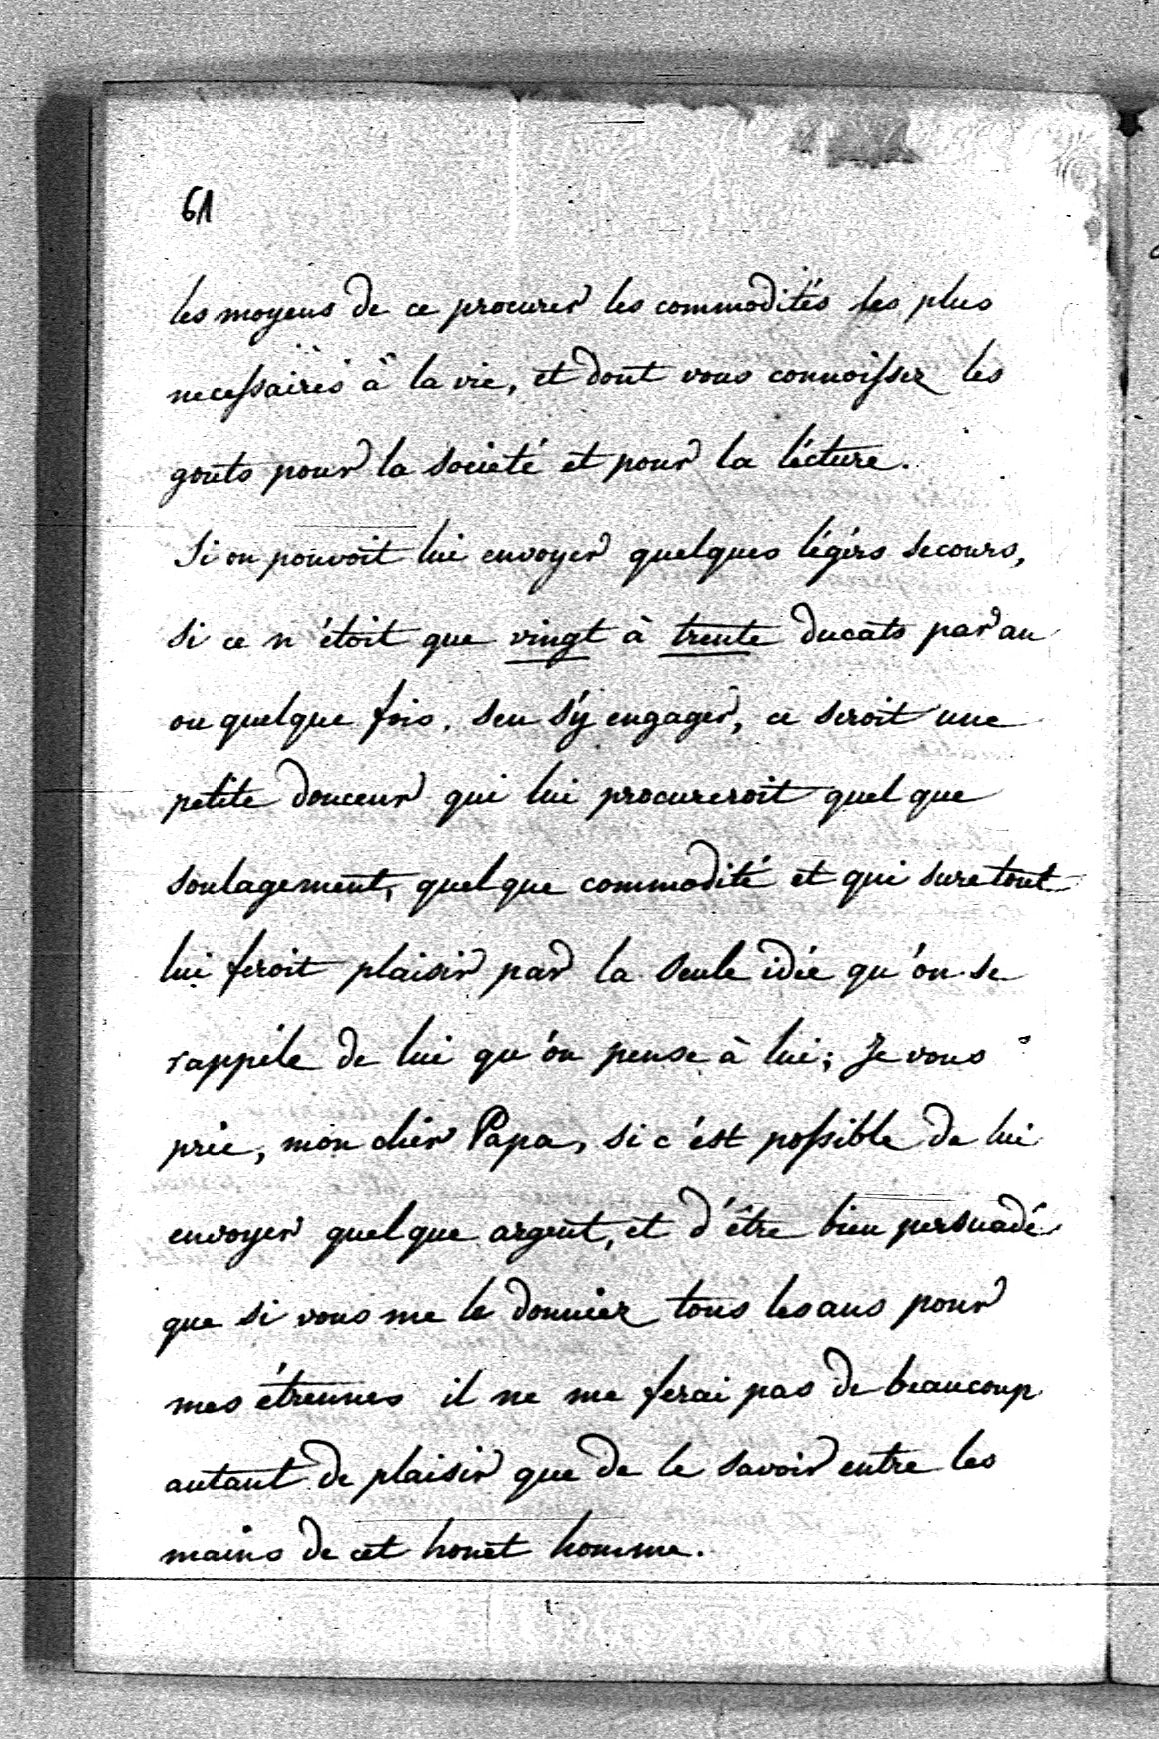 61
les moyens de ce procurer les commodités les plus
necessaires à la vie, et dont vous connoissez les
gouts pour la societé et pour la lécture.
Si on pouvoit lui envoyer quelques légèrs secours,
si ce n'étoit que vingt à trente ducats par an
ou quelque fois, sen s'y engager, ce seroit une
petite douceur qui lui procureroit quelque
soulagement, quelque commodité et qui suretout
lui feroit plaisir par la seule idée qu'on se
rappéle de lui qu'on pense à lui; Je vous
prie, mon chèr Papa, si c'est possible de lui
envoyer quelque argent, et d'être bien persuadé
que si vous me le donniez tous les ans pour
mes étrennes il ne me ferai pas de beaucoup
autant de plaisir que de le savoir entre les
mains de cet honet homme.